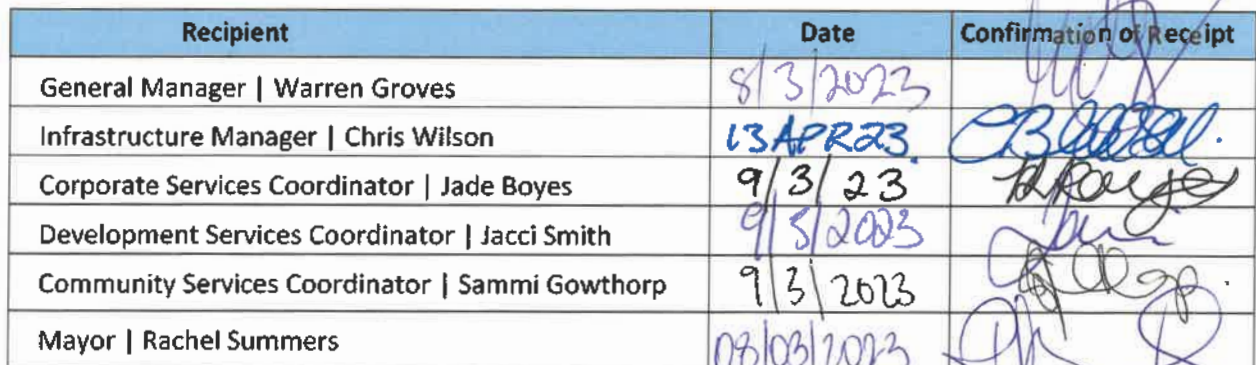 Recipient Date Confirmation of Receipt
General Manager | Warren Groves 8/3/2023
Infrastructure Manager | Chris Wilson 13 APR 23.
Corporate Services Coordinator | Jade Boyes 9/3/23
Development Services Coordinator | Jacci Smith 9/5/2023
Community Services Coordinator | Sammi Gowthorp 9/3/2023
Mayor | Rachel Summers 08/03/2023